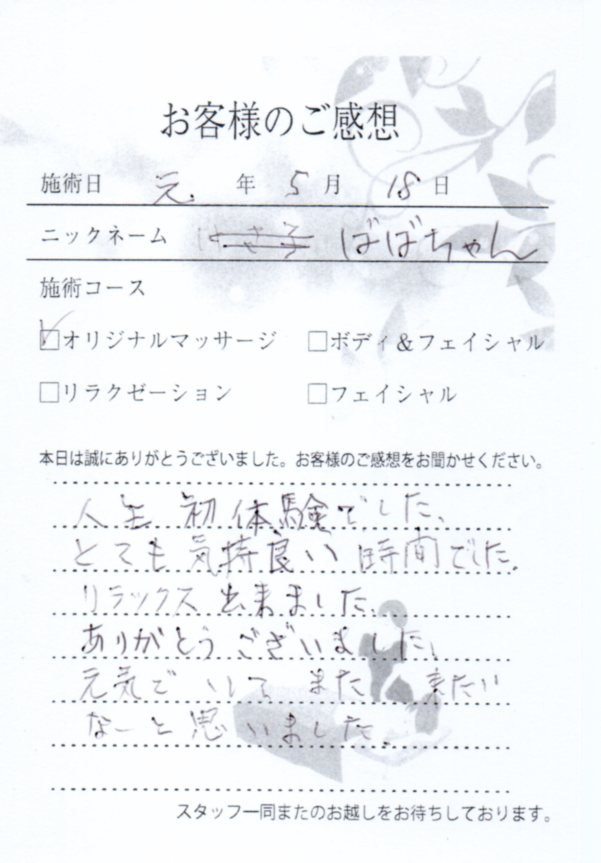 お客様のご感想
施術日 元. 年 5月 18日
ニックネーム ばばちゃん
施術コース
☑オリジナルマッサージ □ボディ&フェイシャル
□リラクゼーション □フェイシャル
本日は誠にありがとうございました。お客様のご感想をお聞かせください。
人生初体験でした、
とても気持良い時間でした。
リラックス出来ました。
ありがとうございました。
元気で いして また 来たい
なーと思いました。
スタッフ一同またのお越しをお待ちしております。